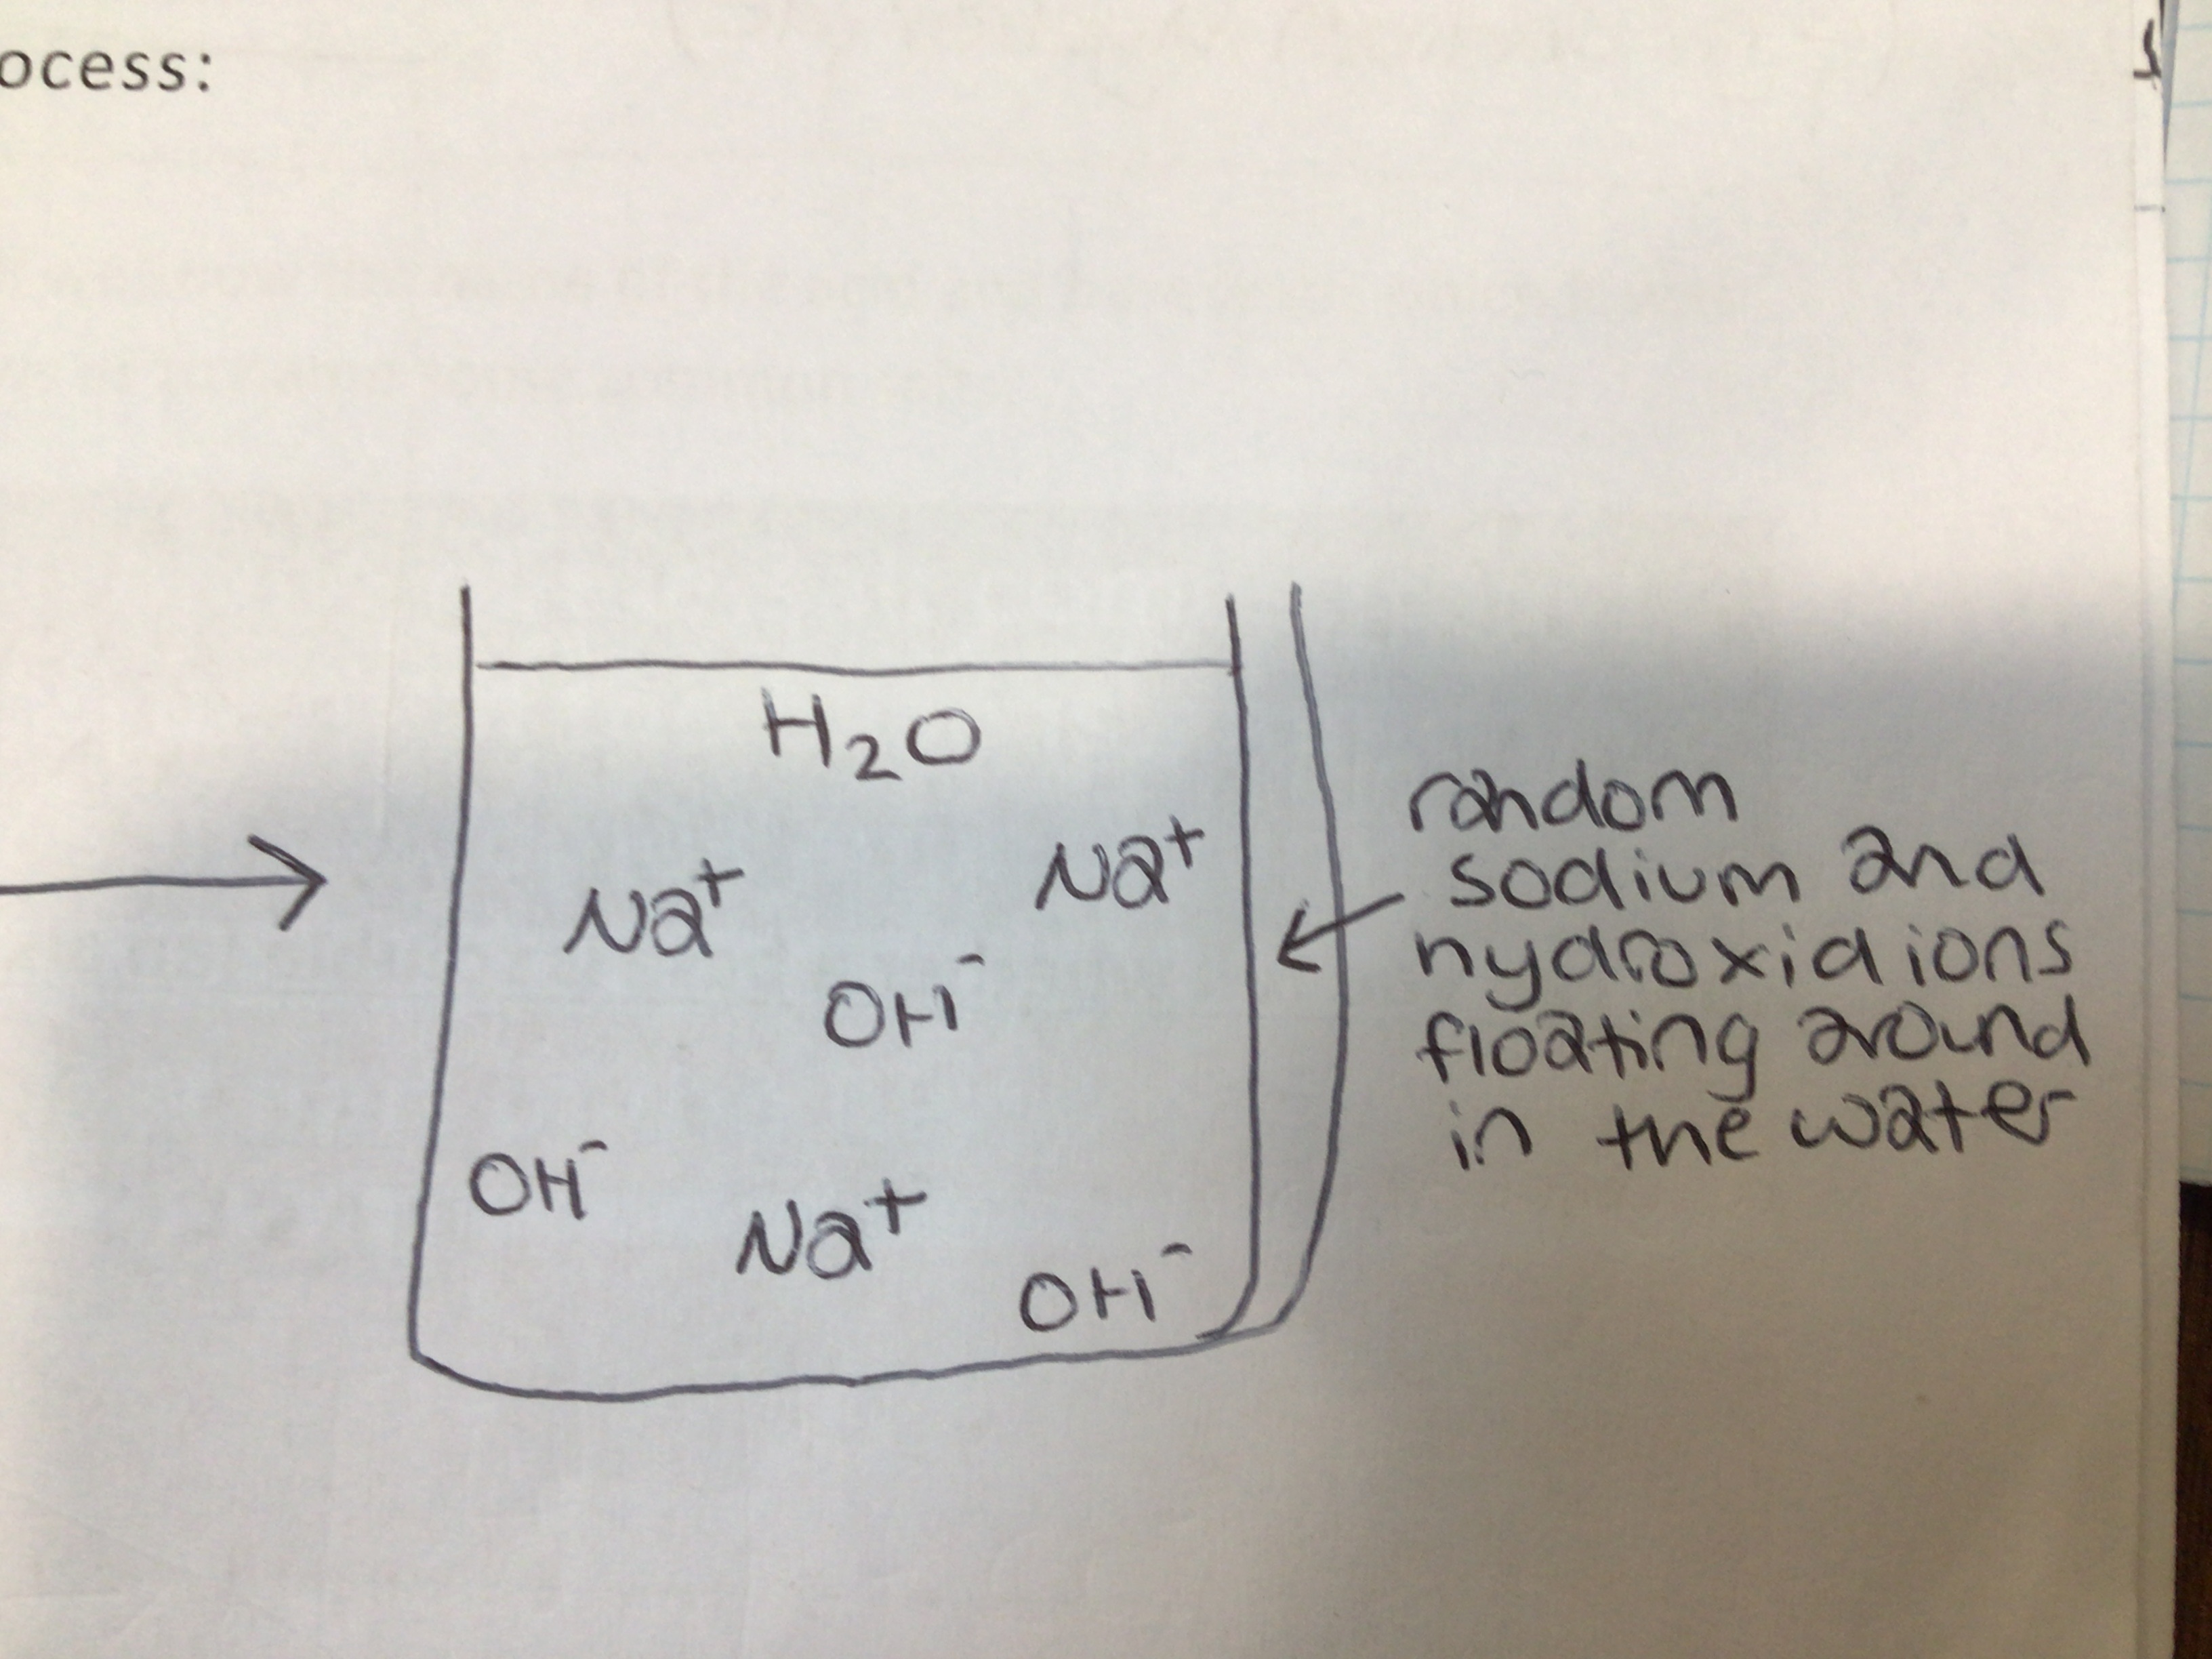 ocess:
H₂O
Na⁺
Na⁺
OH⁻
OH⁻
Na⁺
OH⁻
random
sodium and
hydroxid ions
floating around
in the water